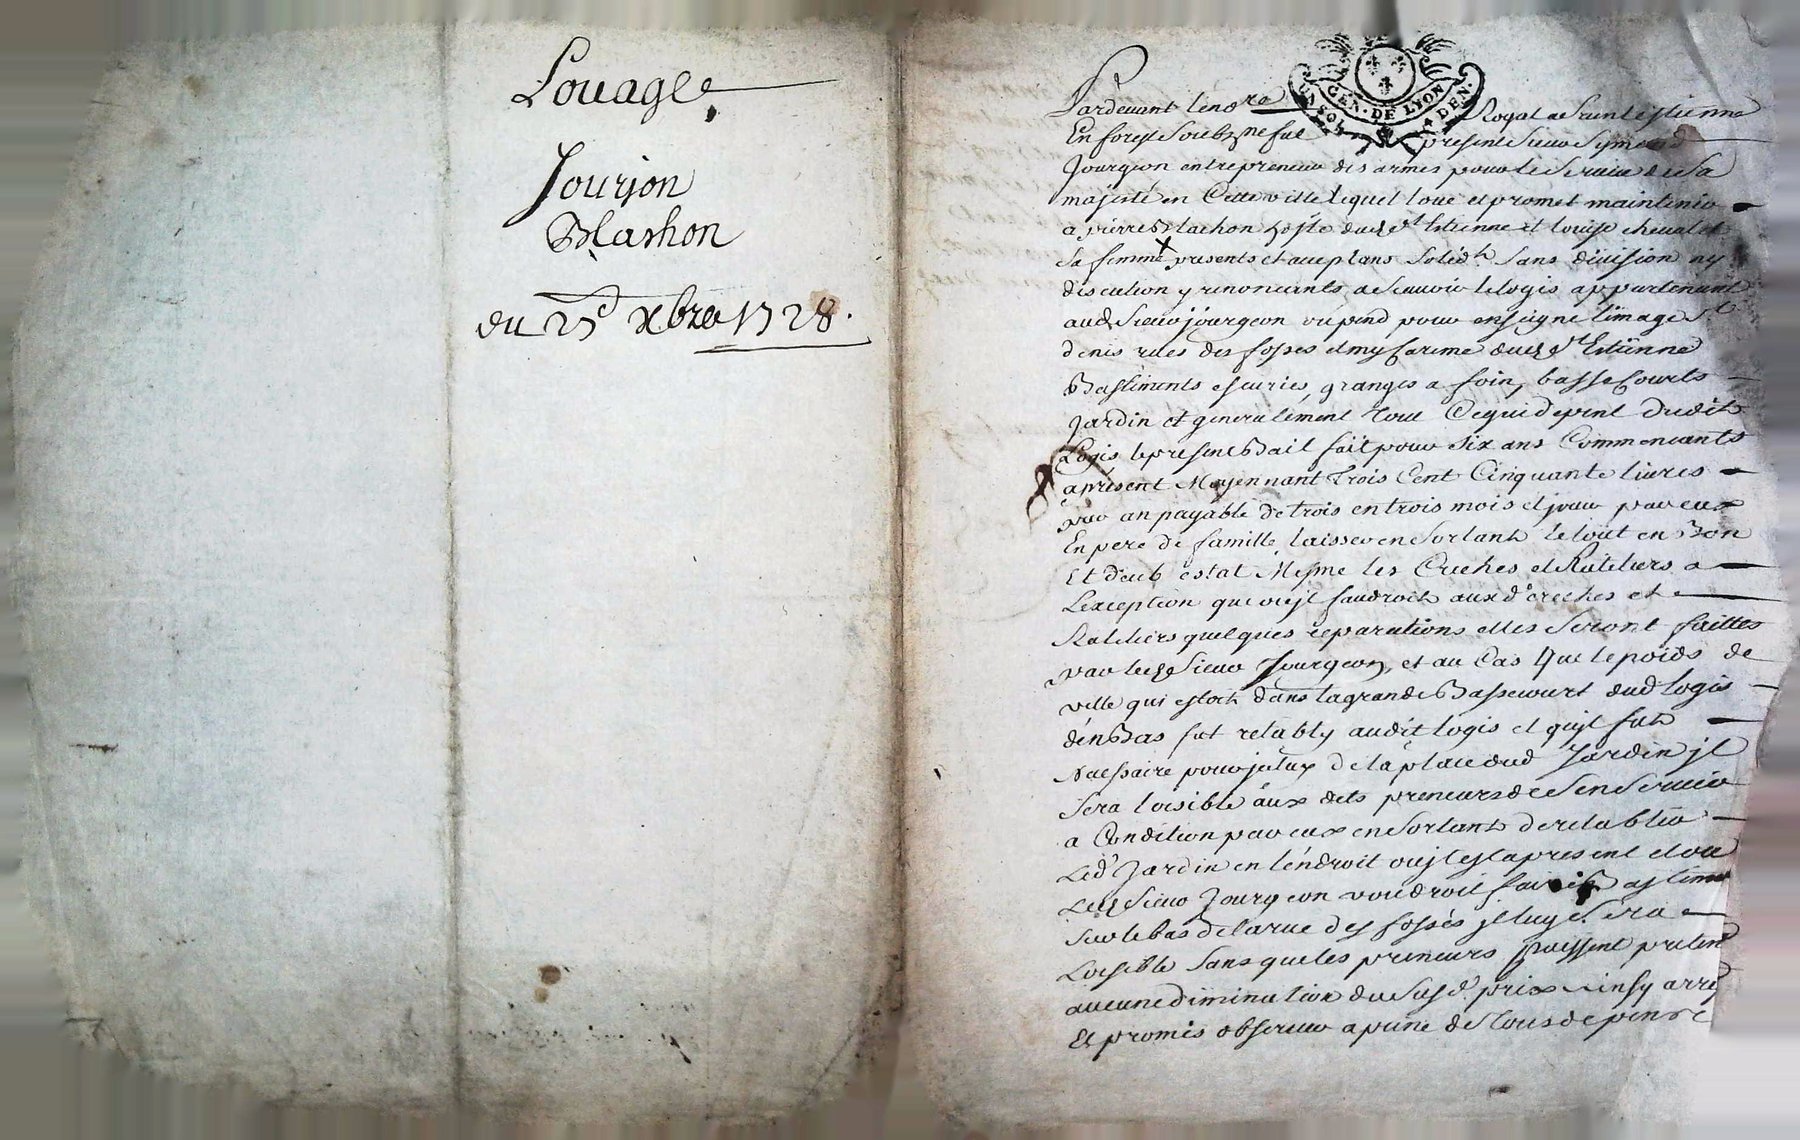 Louage
Jourjon
Blachon
du 25e xbre 1728.
GEN. DE LYON
Pardevant le no.re Royal a Saint estienne
En forest Soubz.ne fut present Sieur Symond
Jourgeon entrepreneur des armes pour le Service de Sa
majesté en Cette ville lequel loue et promet maintenir
a pierre Blachon hoste dud St Estienne et louise chevalet
Sa femme presents et acceptans Solid.t Sans division ny
discution y renonceants a Scavoir le logis appartenant
aud Sieur jourgeon ou pend pour enseigne l'image St
denis rues des fosses et my Careme dud St Estienne
Bastiments escuries, granges a foin, basse Courts
Jardin et generalement tout Ce qui depent dudit
Logis le present Bail fait pour six ans Commenceants
apresent Moyennant Trois Cent Cinquante livres
par an payable de trois en trois mois et jouir par eux
En pere de famille laisser en Sortant le tout en Bon
Et deub estat Mesme les Creches et Rateliers a
Lexception que ou jl faudroit aux d. creches et
Rateliers quelques reparations elles Seront faittes
par led Sieur Jourgeon, et au Cas Que le poids de
ville qui estoit dans la grande Bassecourt dud logis
den Bas fut retably audit logis et qujl fut
Necessaire pour jcelux de la place dud Jardin jl
Sera loisible aux dits preneurs de Sen Servir
a Condition par eux en Sortant de retablir
Led Jardin en lendroit ou jl est apresent et ou
Led Sieur Jourgeon voudroit faire Bastiment
Sur le bas de la rue des fossés jl luy Sera
Loisible Sans que les preneurs puissent preten
aucune diminution du Susd. prix ainsy arre
Et promis observer a peine de tous depens